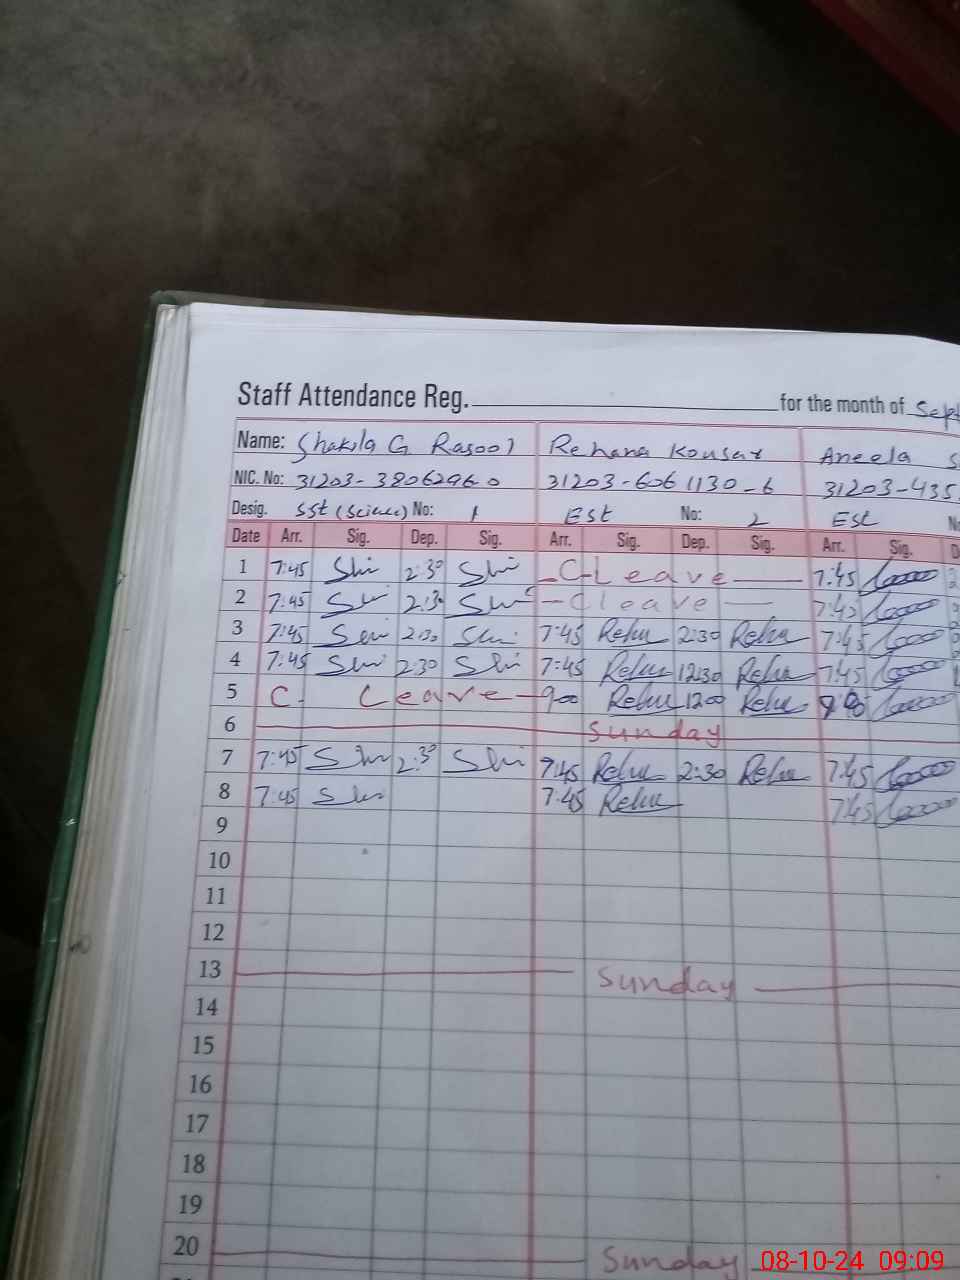 Staff Attendance Reg. for the month of Sept
Name: Shakila G Rasool Rehana Kousar Aneela S
NIC. No: 31203-3806296-0 31203-6061130-6 31203-435
Desig. SST (Science) No: 1 EST No: 2 EST No
Date Arr. Sig. Dep. Sig. Arr. Sig. Dep. Sig. Arr. Sig. D
1 7:45 2:30 C-Leave 7:45
2 7:45 2:30 C leave 7:45
3 7:45 2:30 7:45 Rehu 2:30 Rehu 7:45
4 7:45 2:30 7:45 Rehu 12:30 Rehu 7:45
5 C. Leave 9:00 Rehu 12:00 Rehu
6 Sunday
7 7:45 2:30 7:45 Rehu 2:30 Rehu 7:45
8 7:45 7:45 Rehu 7:45
9
10
11
12
13 Sunday
14
15
16
17
18
19
20 Sunday
08-10-24 09:09